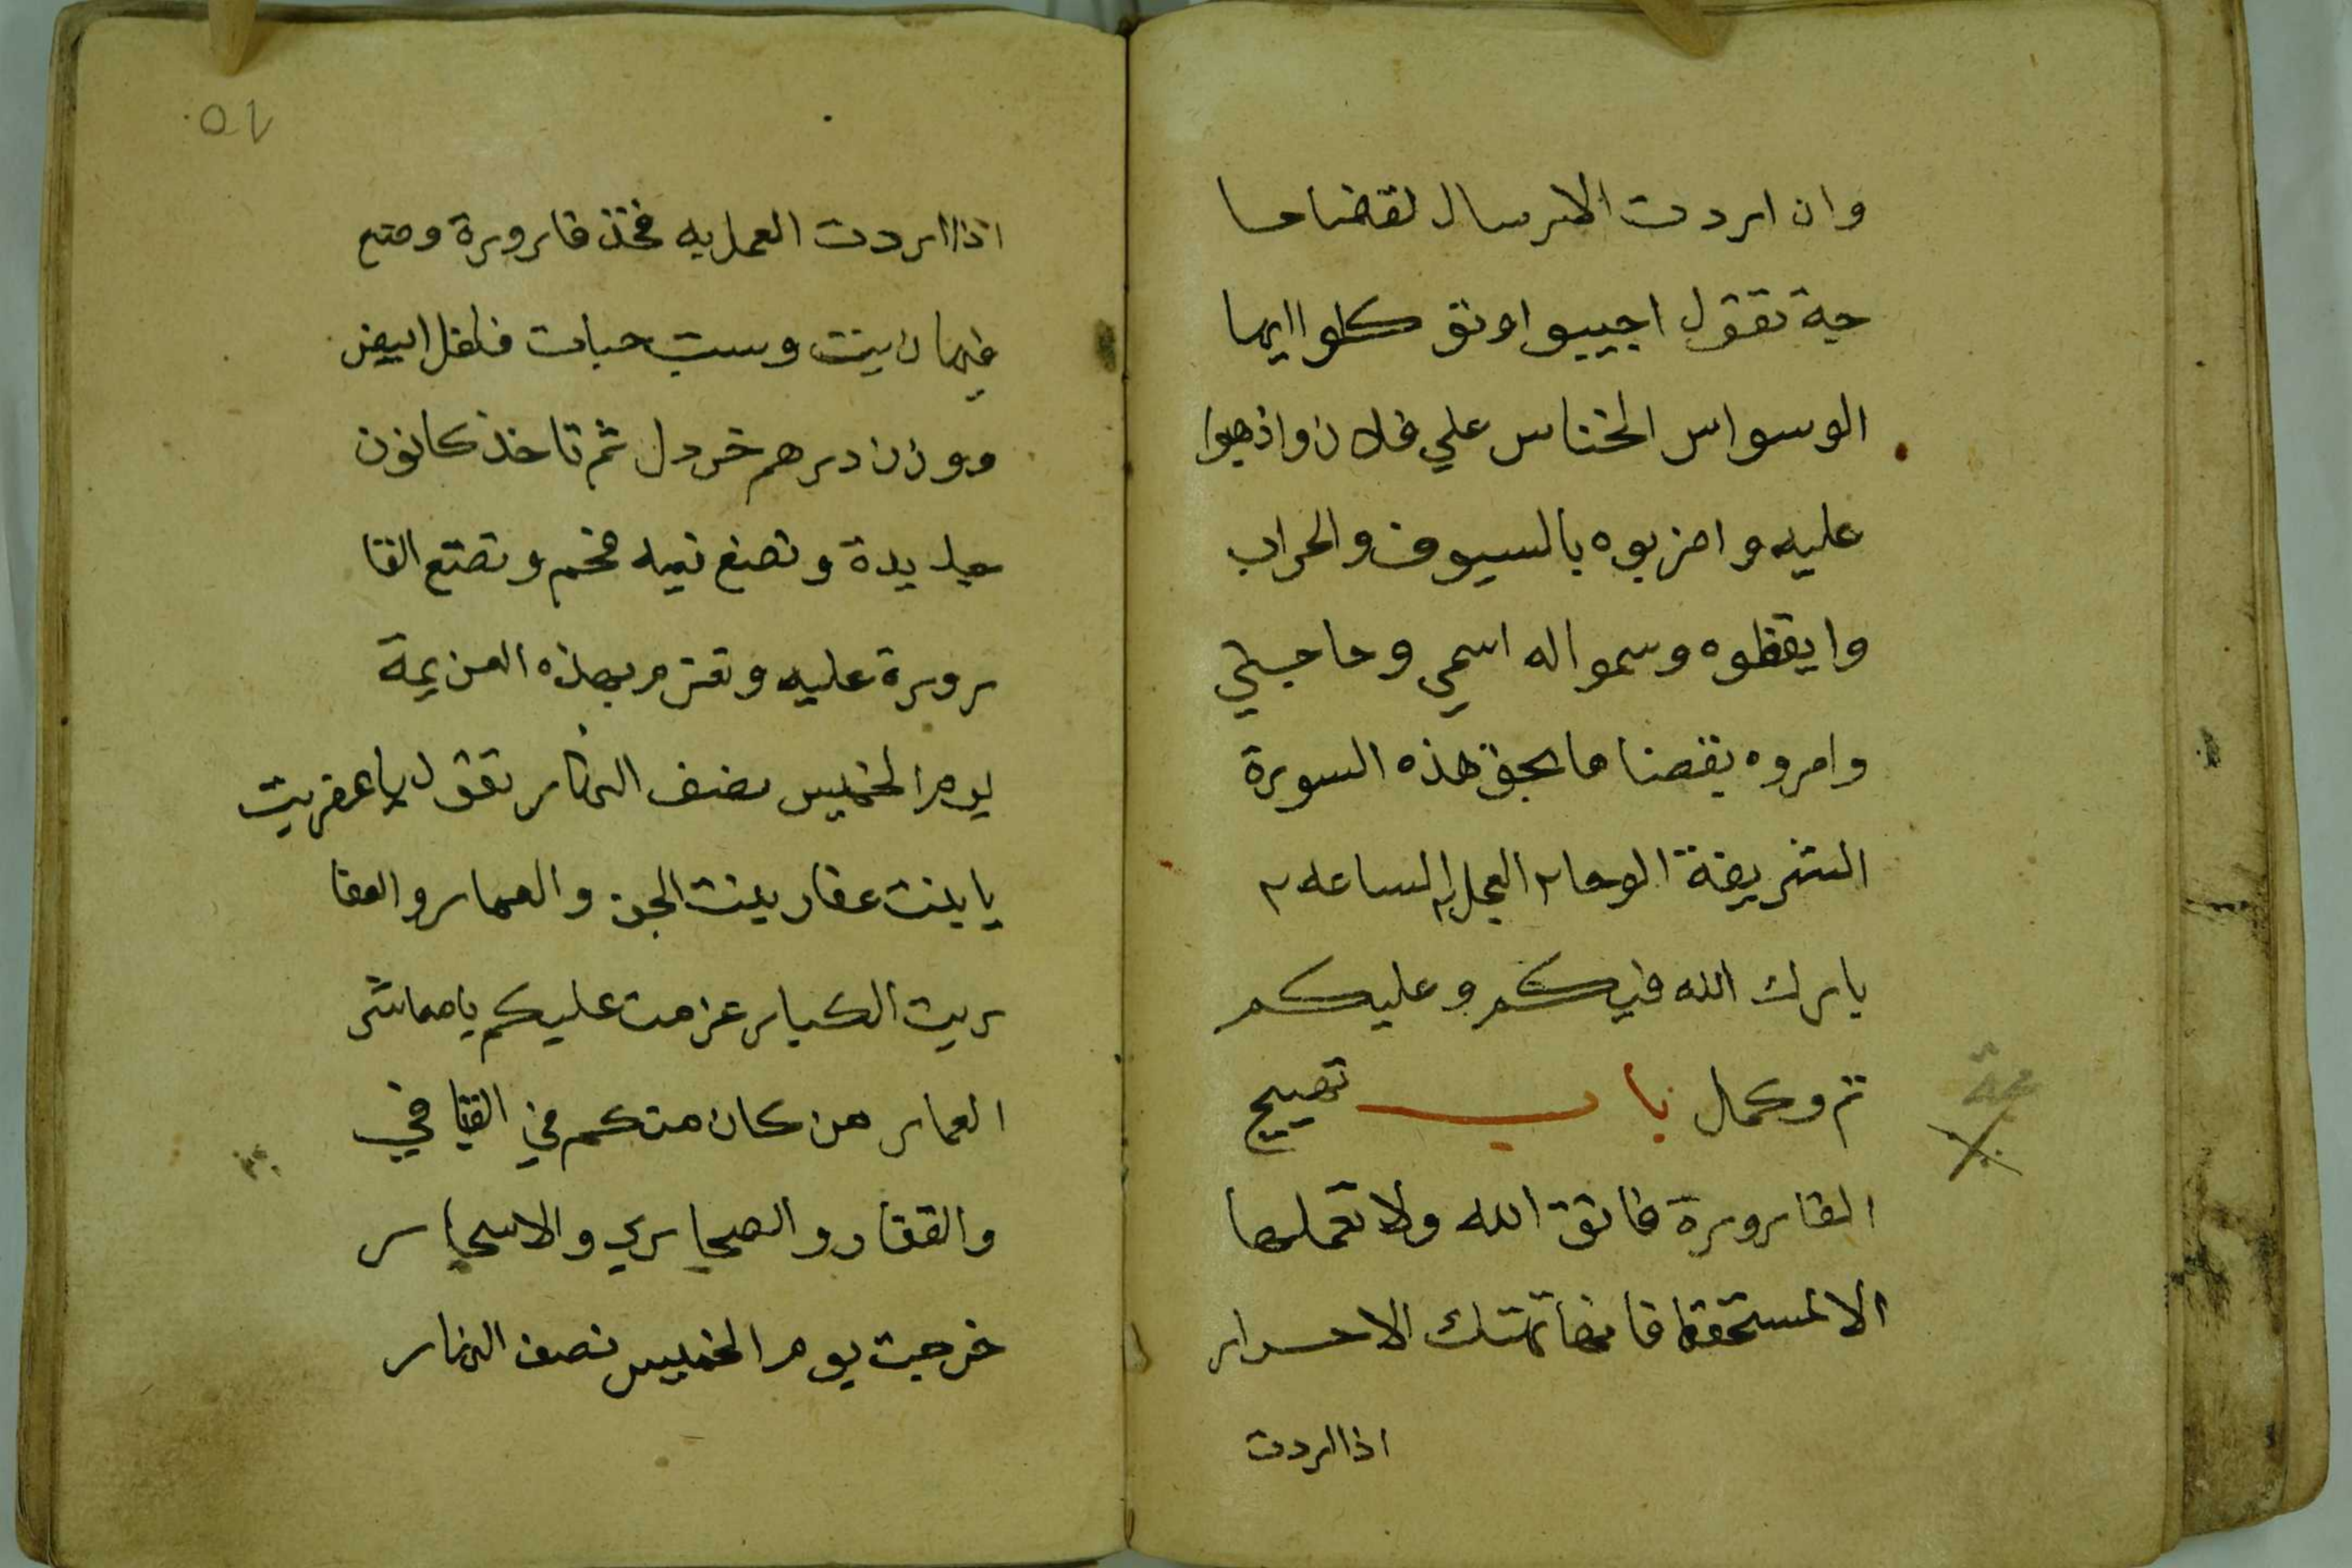 وان اردت الارسال لقضا حا
جة تقول اجيبوا وتوكلوا ايها
الوسواس الخناس علي فلان واذهبوا
عليه واضربوه بالسيوف والحراب
وايقظوه وسموا له اسمي وحاجتي
وامروه بقضا ما بحق هذه السورة
الشريفة الوحا ٢ العجل ٢ الساعه ٢
بارك الله فيكم وعليكم
تم وكمل باب تهييج
القارورة فاتق الله ولا تعملها
الا لمستحقها فانها تهتك الاحرار
اذا اردت
٥٧
اذا اردت العمل به فخذ قارورة وضع
فيها زيت وست حبات فلفل ابيض
ووزن درهم خردل ثم تاخذ كانون
جديدة وتضع فيه فحم وتضع القا
رورة عليه وتعزم بهذه العزيمة
يوم الخميس نصف النهار تقول يا عفريت
يا بنت عفار بنت الجن والعمار والعفا
ريت الكبار عزمت عليكم يا معاشر
العمار من كان منكم في الفيافي
والقفار والصحاري والاسحار
خرجت يوم الخميس نصف النهار